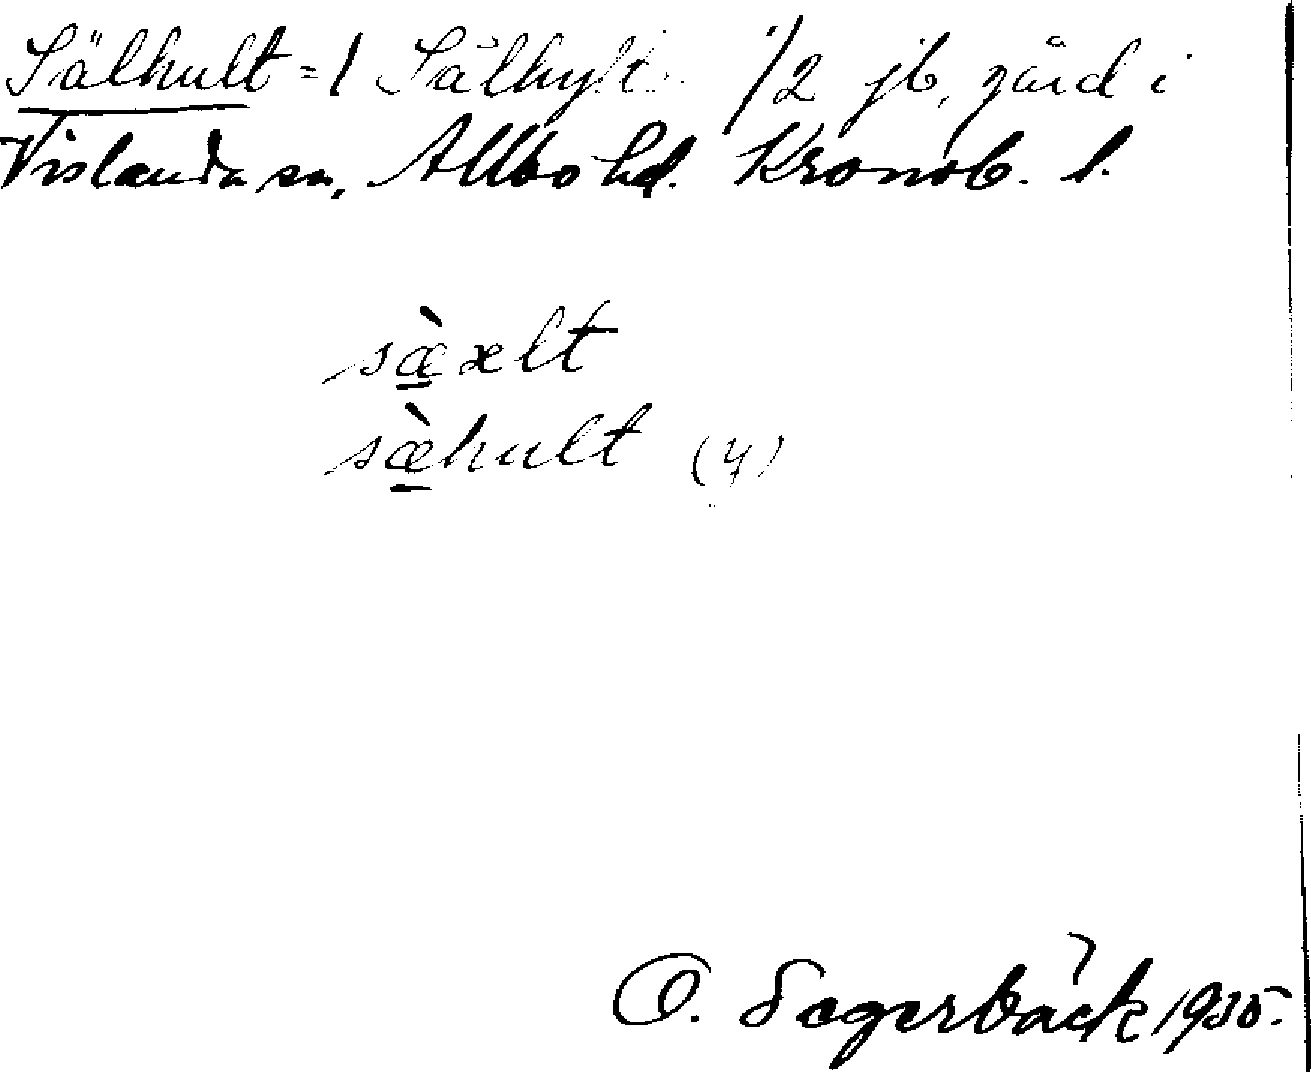 Sälhult = / Sälhylt. 1/2 jb. gård i
Vislanda sn, Allbo hd. Kronob. l.
sæ̀xlt
sæ̀hult (y)
O. Sagerbäck 1935.